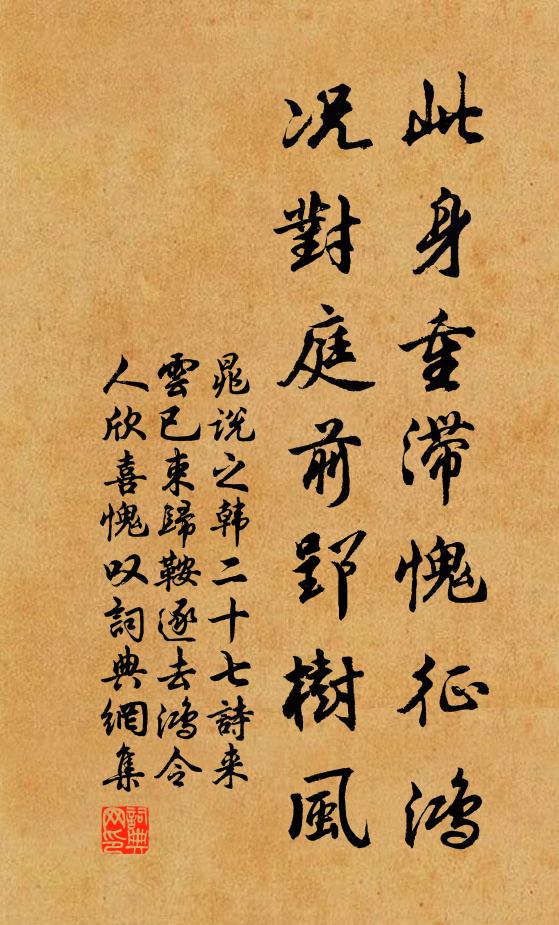 此身重滞愧征鸿
况對庭前郢樹風
晁说之韩二十七詩来
雲已束歸鞍逐去鸿令
人欣喜愧叹詞典網集
詞典网印